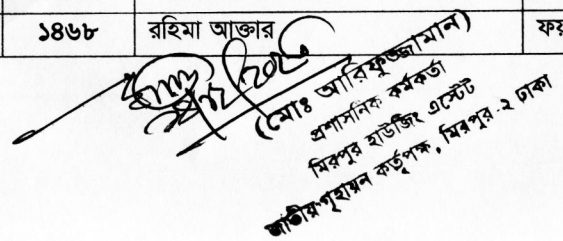 ১৪৬৮ রহিমা আক্তার ফয়
(মোঃ আরিফুজ্জামান)
প্রশাসনিক কর্মকর্তা
মিরপুর হাউজিং এস্টেট
জাতীয় গৃহায়ন কর্তৃপক্ষ, মিরপুর-২ ঢাকা